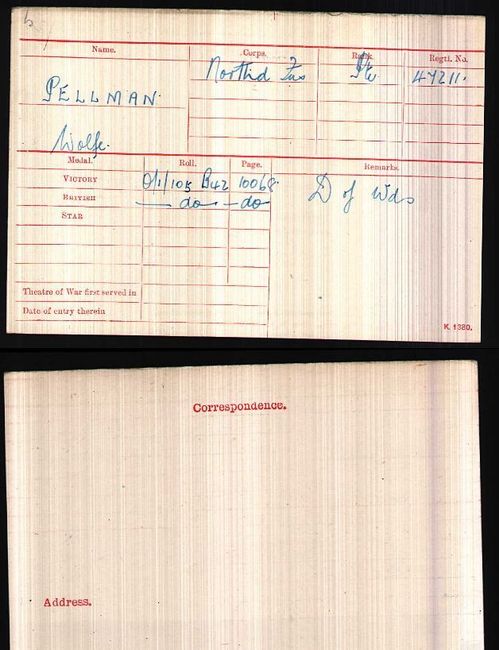 Name. Corps. Rank. Regtl. No.
PELLMAN. Northd Fus Pte 47211.
Wolfe.
Medal. Roll. Page. Remarks.
VICTORY O/1/105 B42 10068. D of Wds
BRITISH — do — — do —
STAR
Theatre of War first served in
Date of entry therein
K. 1380.
Correspondence.
Address.